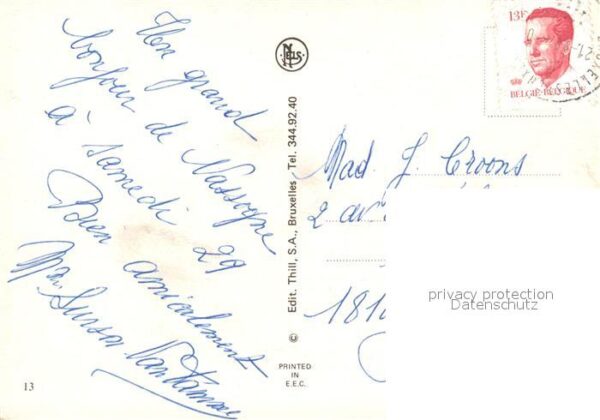 Un grand
bonjour de Nassogne
à samedi 29
Bien amicalement
NELS
Edit. Thill, S.A., Bruxelles - Tel. 344.92.40
©
PRINTED
IN
E.E.C.
13
13F
BELGIË-BELGIQUE
Mad. J. Croons
2 av
181
privacy protection
Datenschutz